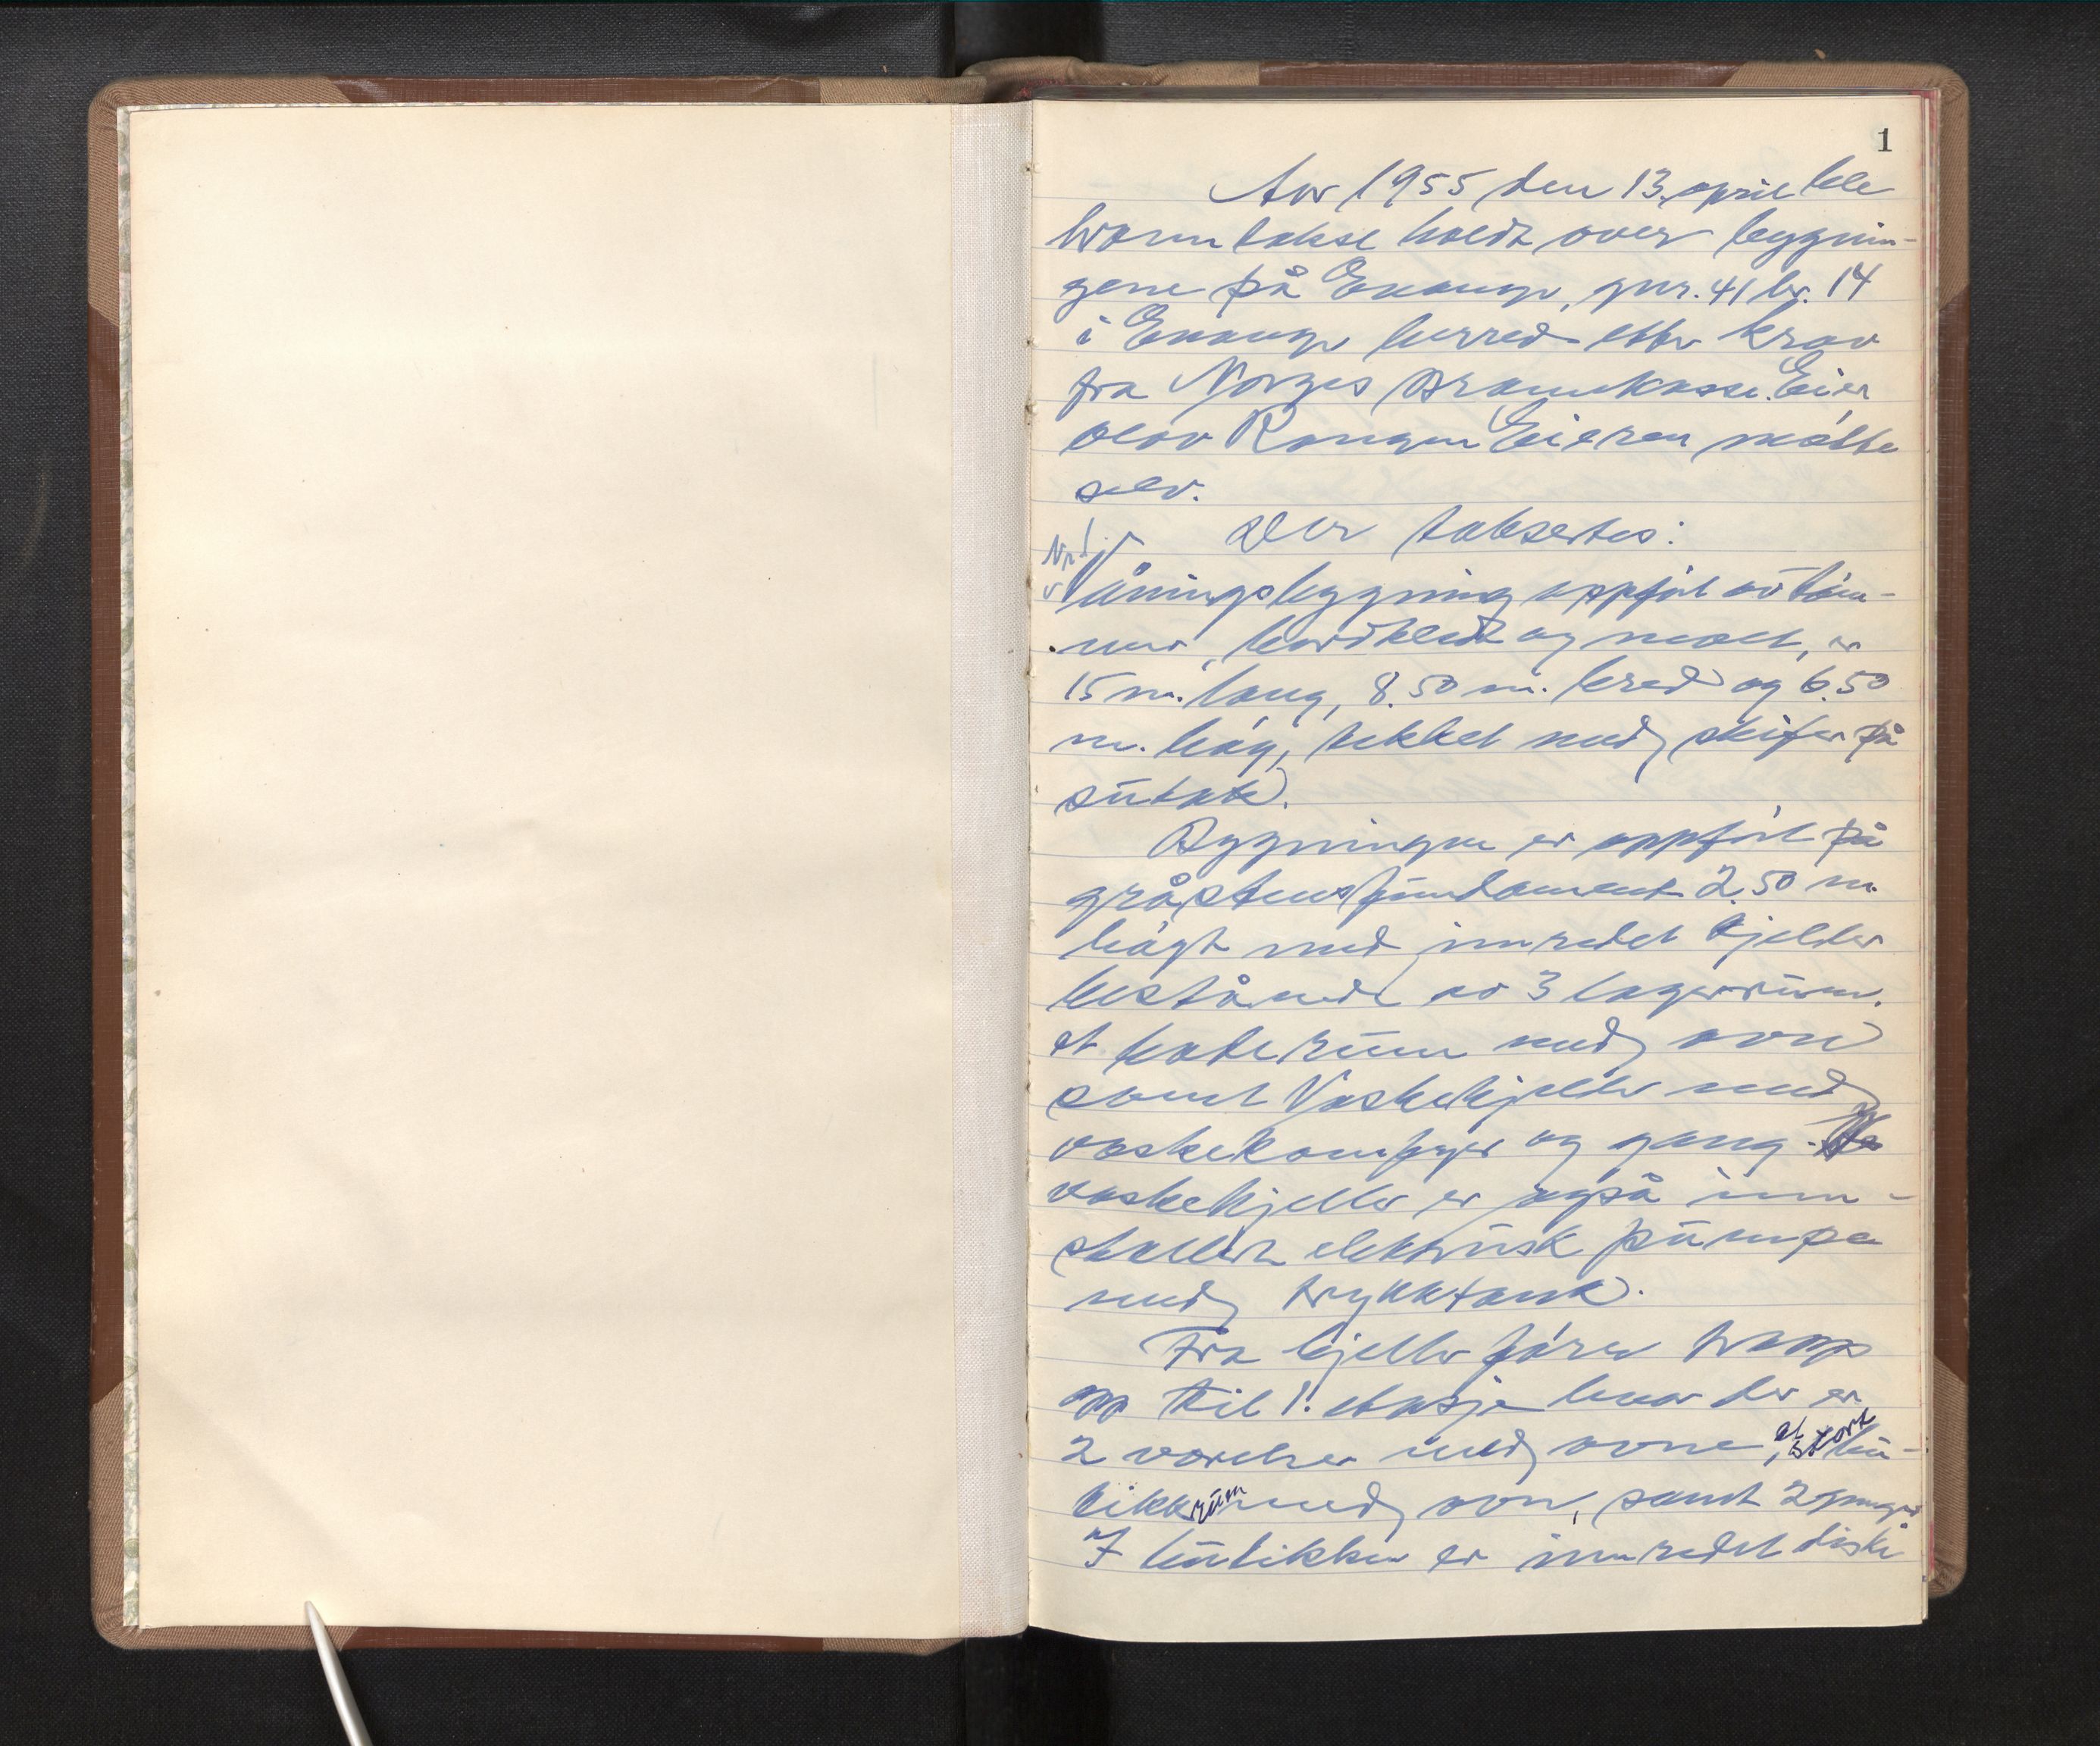 1
Aar 1955 den 13. april ble
branntakst holdt over bygnin-
gene på Evanger, gnr. 41 br. 14
i Evanger herred etter krav
fra Norges Brannkasse. Eier
Olav Rongen Eieren møtte
selv.
Der taksertes:
Nr. 1
Våningsbygning oppført av tøm-
mer, bordkledt og malt, er
15 m. lang, 8.50 m. bred og 6.50
m. høg, tekket med skifer på
sutak.
Bygningen er oppført på
gråstensfundament 2.50 m.
høgt med innredet kjeller
bestående av 3 lagerrum.
et baderum med ovn
samt Vaskekjeller med
vaskekomfyr og gang. I
vaskekjeller er også inn-
stallert elektrisk pumpe
med trykktank.
Fra kjeller fører trapp
opp til 1. etasje hvor der er
2 værelser med ovne, et stort bu-
tikkrum med ovn, samt 2 ganger
I butikken er innredet diske